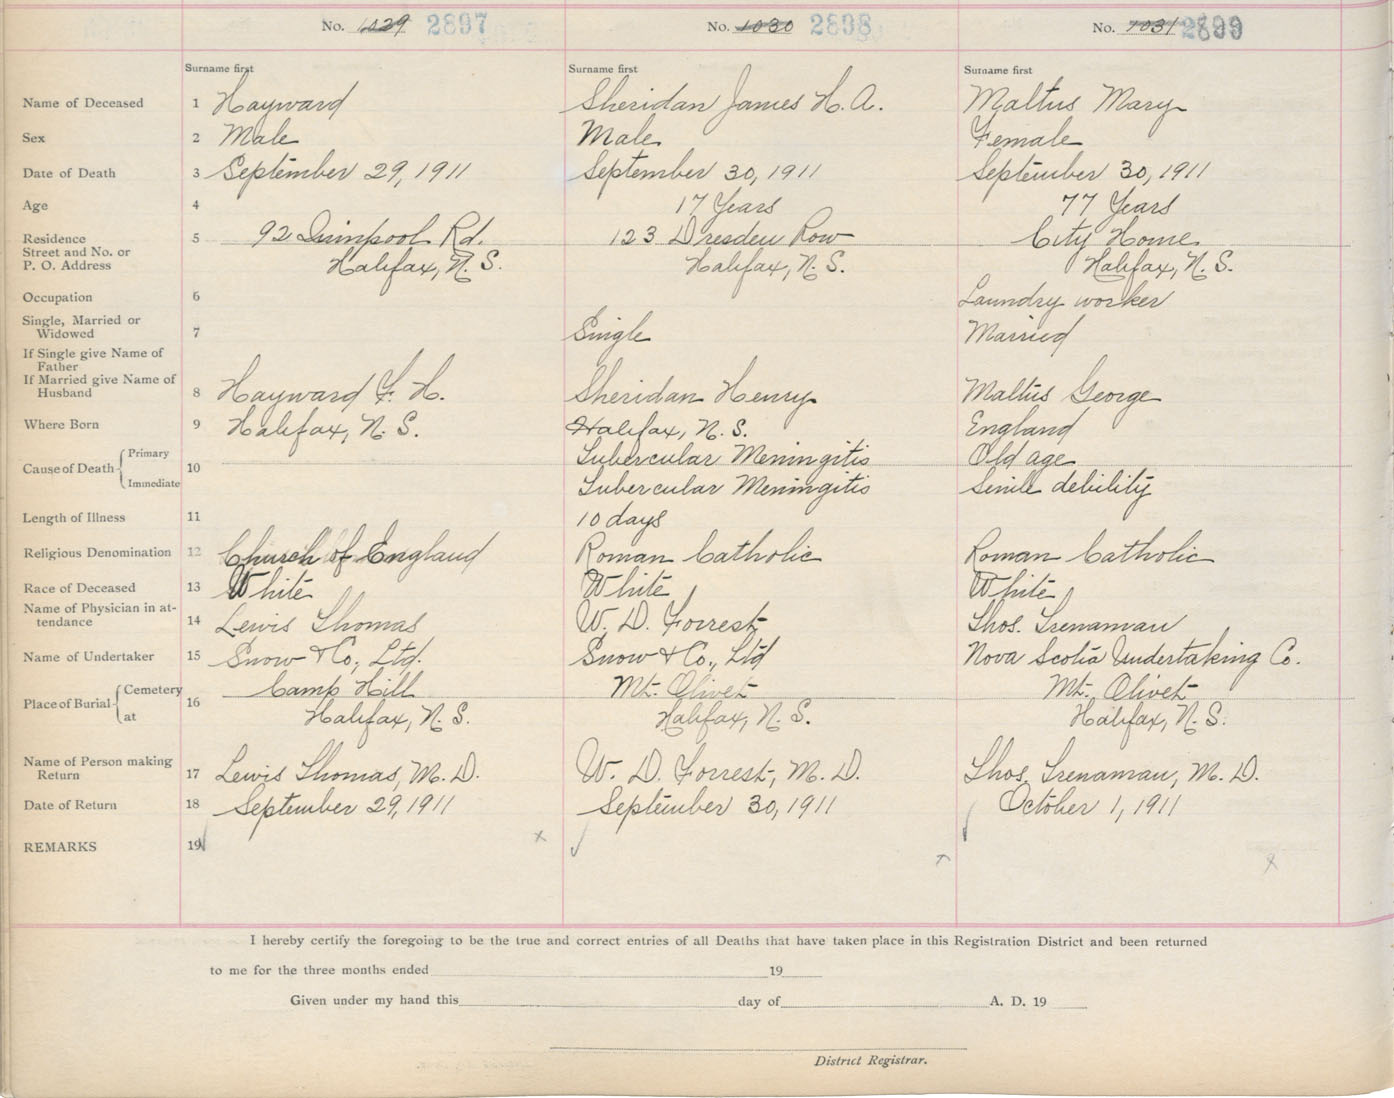 No. 1029 2897 No. 1030 2898 No. 1031 2899
Surname first Surname first Surname first
Name of Deceased 1 Hayward Sheridan James H. A. Maltus Mary
Sex 2 Male Male Female
Date of Death 3 September 29, 1911 September 30, 1911 September 30, 1911
Age 4 17 Years 77 Years
Residence 5 92 Quinpool Rd. 123 Dresden Row City Home
Street and No. or
P. O. Address Halifax, N. S. Halifax, N. S. Halifax, N. S.
Occupation 6 Laundry worker
Single, Married or
Widowed 7 Single Married
If Single give Name of
Father
If Married give Name of
Husband 8 Hayward F. H. Sheridan Henry Maltus George
Where Born 9 Halifax, N. S. Halifax, N. S. England
Primary Tubercular Meningitis Old age
Cause of Death 10
Immediate Tubercular Meningitis Senile debility
Length of Illness 11 10 days
Religious Denomination 12 Church of England Roman Catholic Roman Catholic
Race of Deceased 13 White White White
Name of Physician in at-
tendance 14 Lewis Thomas W. D. Forrest Thos. Trenaman
Name of Undertaker 15 Snow & Co., Ltd. Snow & Co., Ltd Nova Scotia Undertaking Co.
Cemetery Camp Hill Mt. Olivet Mt. Olivet
Place of Burial 16
at Halifax, N. S. Halifax, N. S. Halifax, N. S.
Name of Person making
Return 17 Lewis Thomas, M. D. W. D. Forrest, M. D. Thos. Trenaman, M. D.
Date of Return 18 September 29, 1911 September 30, 1911 October 1, 1911
REMARKS 19
I hereby certify the foregoing to be the true and correct entries of all Deaths that have taken place in this Registration District and been returned
to me for the three months ended 19
Given under my hand this day of A. D. 19
District Registrar.